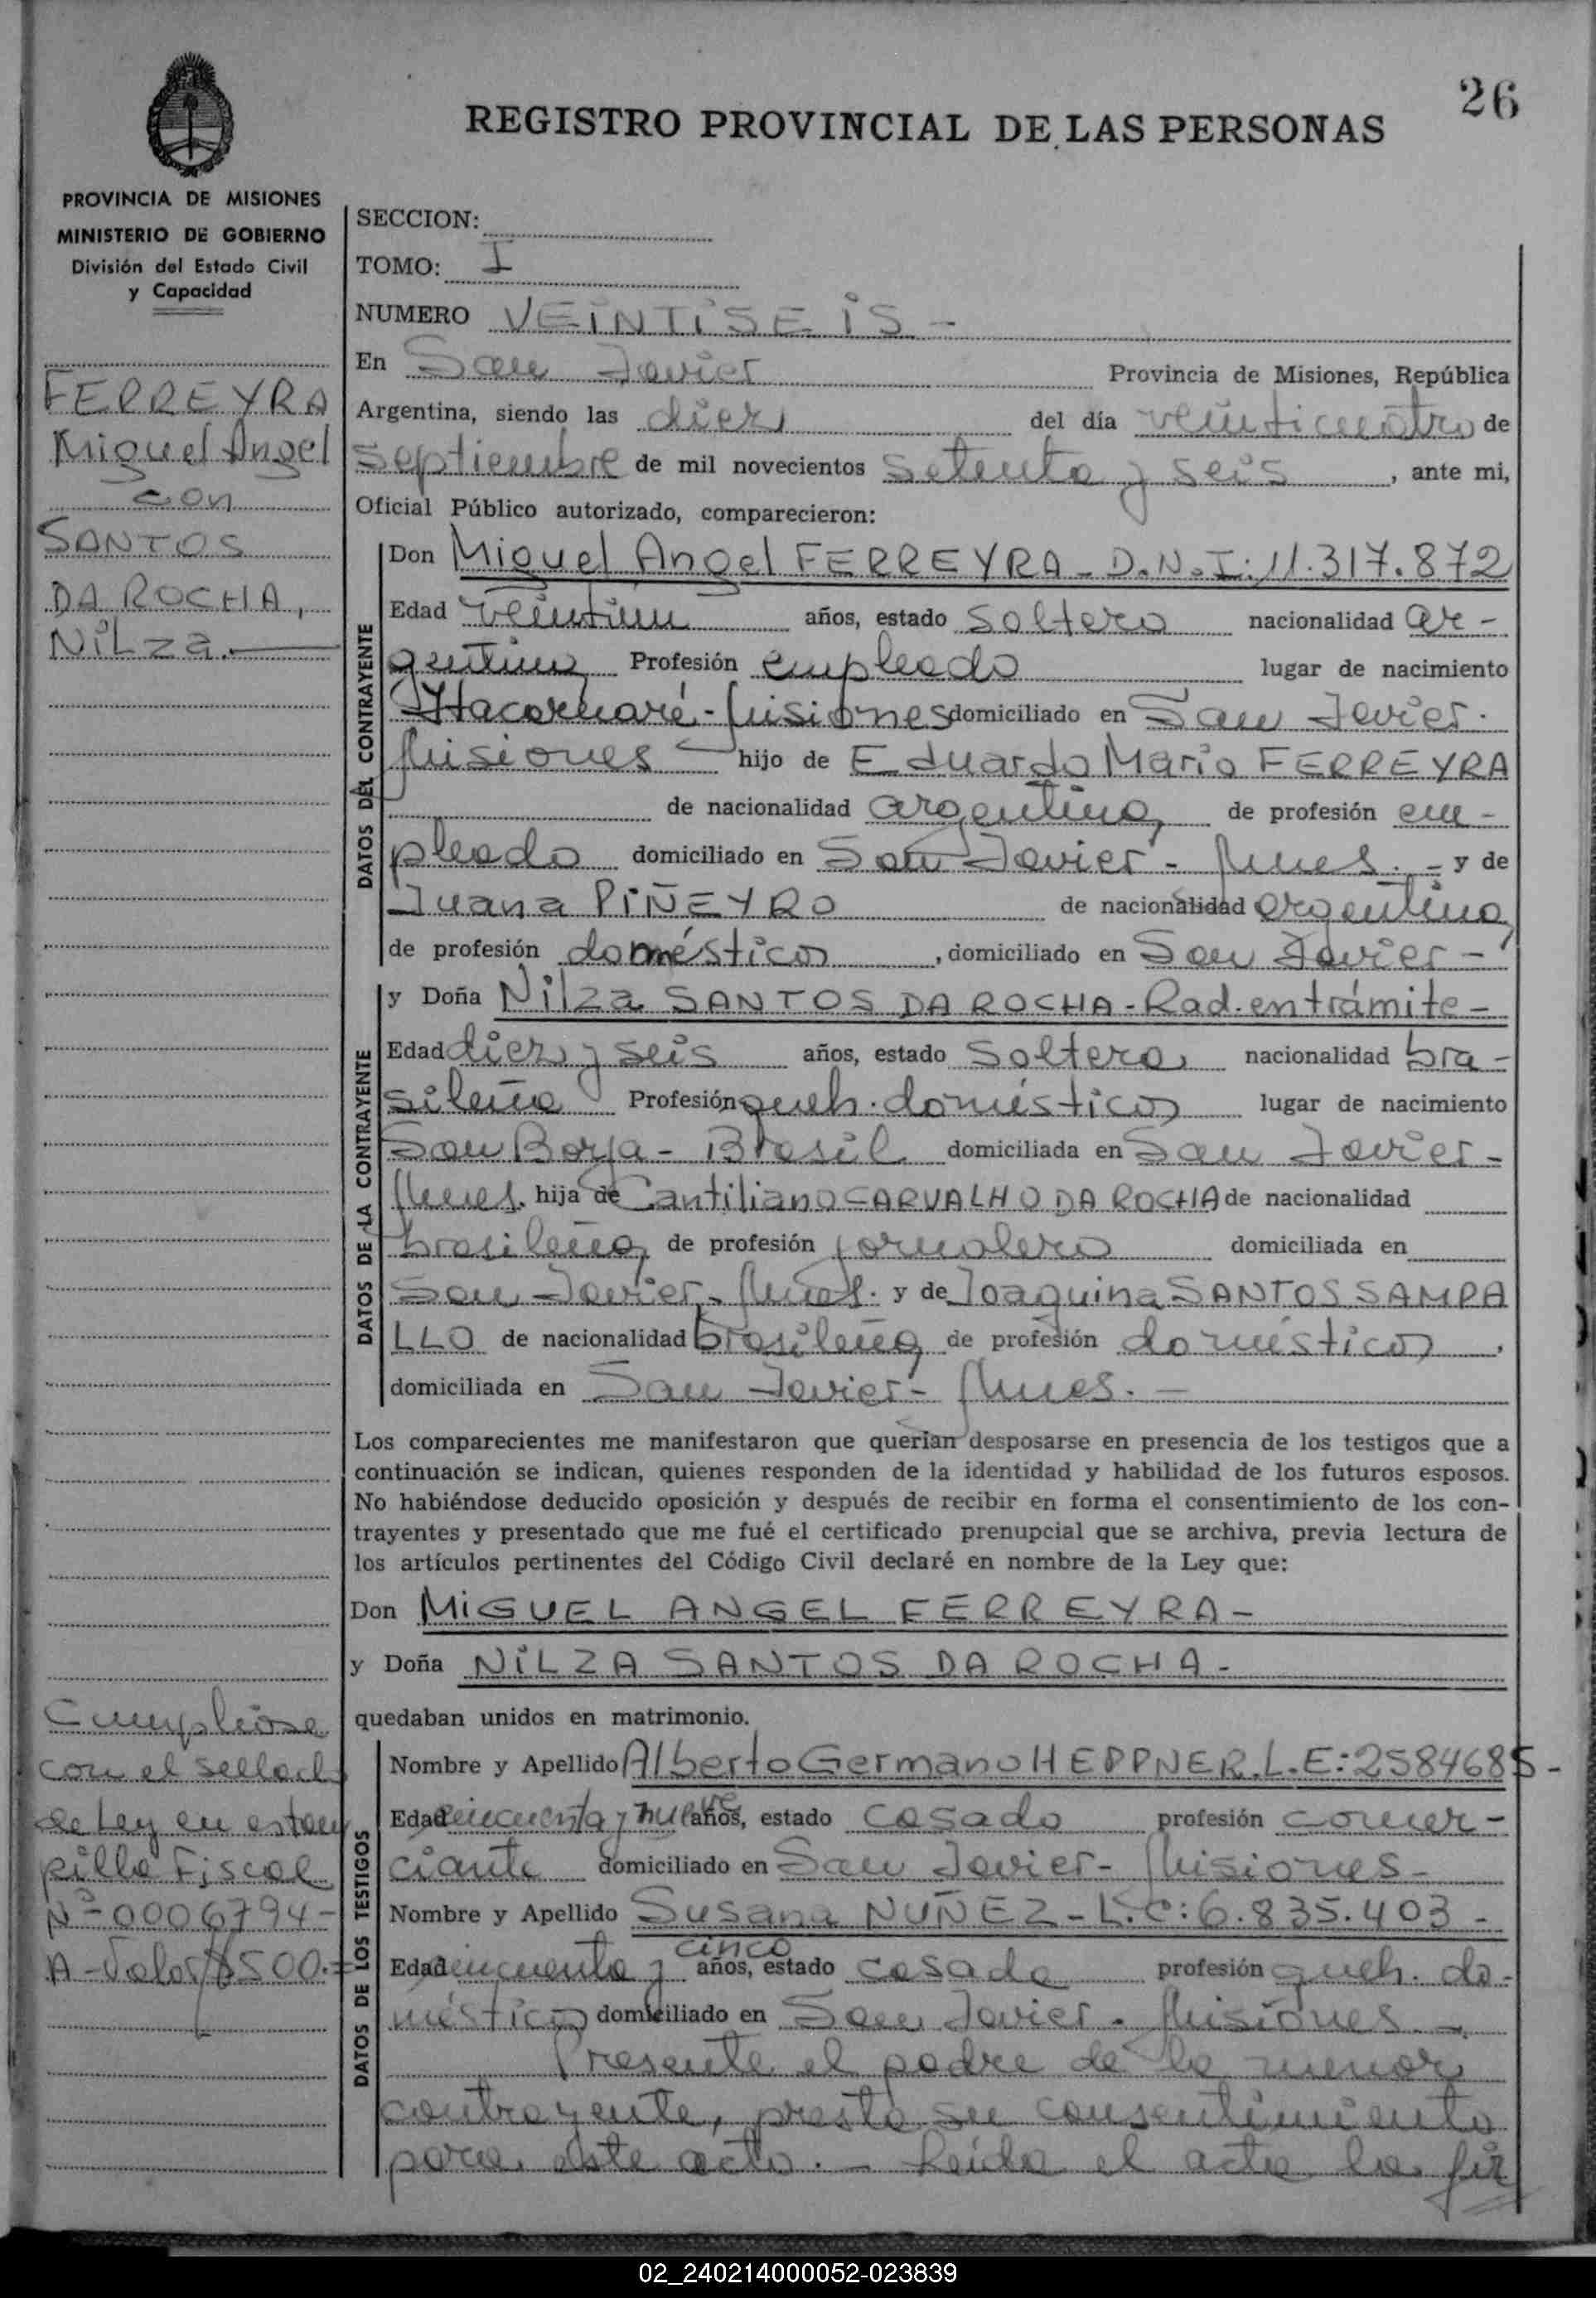 26
REGISTRO PROVINCIAL DE LAS PERSONAS
PROVINCIA DE MISIONES
MINISTERIO DE GOBIERNO
División del Estado Civil
y Capacidad
FERREYRA
Miguel Angel
con
SANTOS
DA ROCHA,
NiLza.
Cumplióse
con el sellad
de Ley en estam
pilla Fiscal
Nº 0006794-
A-Valor $500.=
SECCION:
TOMO: I
NUMERO VEiNTiSEiS -
En San Javier Provincia de Misiones, República
Argentina, siendo las diez del día veinticuatro de
septiembre de mil novecientos setenta y seis, ante mi,
Oficial Público autorizado, comparecieron:
DATOS DEL CONTRAYENTE
Don Miguel Angel FERREYRA - D.N.I: 11.317.872
Edad veintiun años, estado soltero nacionalidad ar-
gentina Profesión empleado lugar de nacimiento
Itacaruaré - Misiones domiciliado en San Javier.
Misiones hijo de Eduardo Mario FERREYRA
de nacionalidad argentina, de profesión em-
pleado domiciliado en San Javier - Mnes. - y de
Juana PiÑEYRO de nacionalidad argentina,
de profesión doméstico, domiciliado en San Javier -
DATOS DE LA CONTRAYENTE
y Doña Nilza SANTOS DA ROCHA - Rad. en trámite -
Edad diez y seis años, estado soltera, nacionalidad bra-
sileña Profesión queh. domésticos lugar de nacimiento
San Borja - Brasil domiciliada en San Javier -
Mnes. hija de Cantiliano CARVALHO DA ROCHA de nacionalidad
brasileña, de profesión jornalero domiciliada en
San Javier - Mnes. y de Joaquina SANTOS SAMPA
LLO de nacionalidad brasileña de profesión domésticos,
domiciliada en San Javier - Mnes. -
Los comparecientes me manifestaron que querían desposarse en presencia de los testigos que a
continuación se indican, quienes responden de la identidad y habilidad de los futuros esposos.
No habiéndose deducido oposición y después de recibir en forma el consentimiento de los con-
trayentes y presentado que me fué el certificado prenupcial que se archiva, previa lectura de
los artículos pertinentes del Código Civil declaré en nombre de la Ley que:
Don MiGUEL ANGEL FERREYRA -
y Doña NiLZA SANTOS DA ROCHA -
quedaban unidos en matrimonio.
DATOS DE LOS TESTIGOS
Nombre y Apellido Alberto Germano HEPPNER. L.E: 2584685 -
Edad cincuenta y nueve años, estado casado profesión comer-
ciante domiciliado en San Javier - Misiones -
Nombre y Apellido Susana NUÑEZ - L.C: 6.835.403 -
Edad cincuenta y cinco años, estado casada profesión queh. do-
mésticos domiciliado en San Javier. Misiones. -
Presente el padre de la menor
contrayente, presta su consentimiento
para este acto. - Leída el acta la fir
02_240214000052-023839